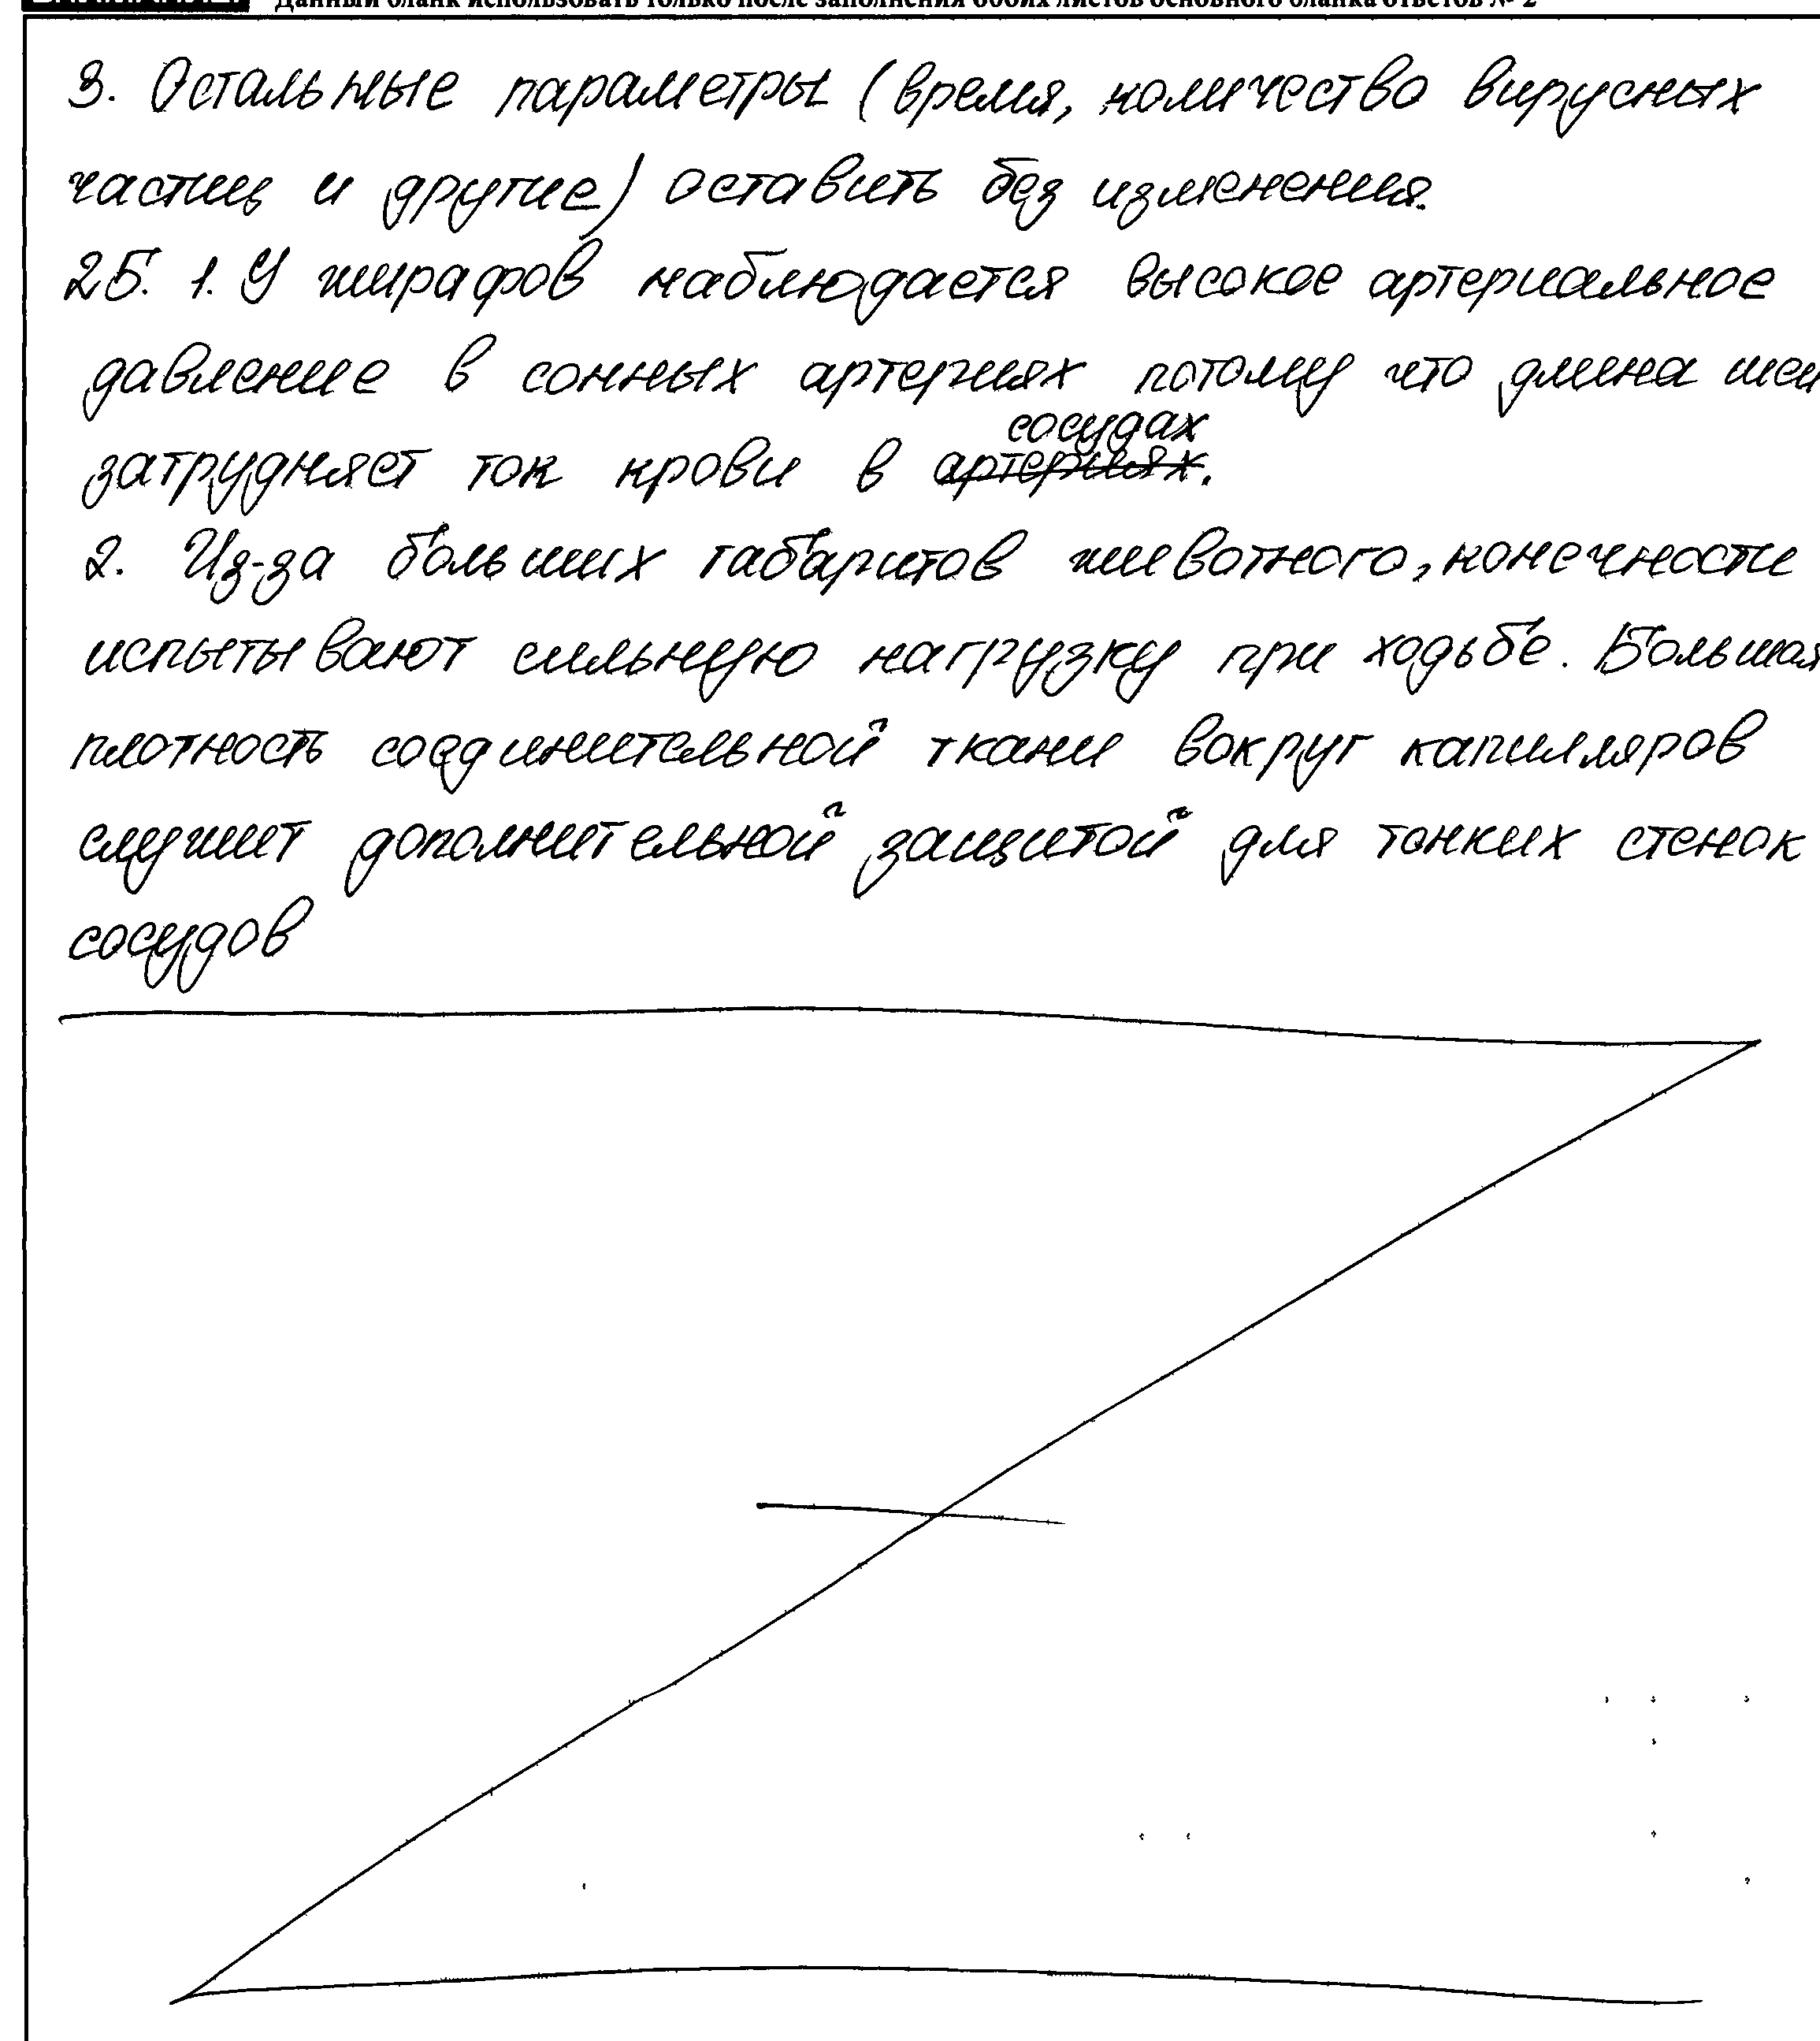 Данный бланк использовать только после заполнения обоих листов основного бланка ответов № 2
3. Остальные параметры (время, количество вирусных
частиц и другие) оставить без изменения.
25. 1. У жирафов наблюдается высокое артериальное
давление в сонных артериях потому что длина шеи
сосудах
затрудняет ток крови в артериях.
2. Из-за больших габаритов животного, конечности
испытывают сильную нагрузку при ходьбе. Большая
плотность соединительной ткани вокруг капилляров
служит дополнительной защитой для тонких стенок
сосудов